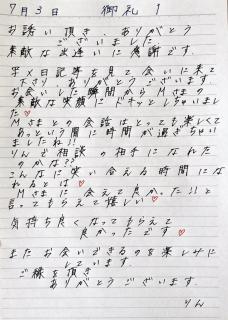 7月3日 御礼 1
お誘い頂き、ありがとう
ございました
素敵な出逢いに感謝です。
写メ日記等を見て会いに来て
下さり ありがとうございます
お会いした瞬間から Mさまの
素敵な笑顔にドキッとしちゃいまし
た♡
Mさまとの会話はとっても楽しくて
あっという間に時間が過ぎちゃい
ましたね!!
りんで相談の相手になれた
のかな??
こんなに笑い合える時間にな
れるとは♥
Mさまに会えて良かった!!と
言ってもらえて嬉しい♡
気持ち良くなってもらえて
良かったです♥
またお会いできるのを楽しみに
しています。
ご縁を頂き
ありがとうございます。
りん